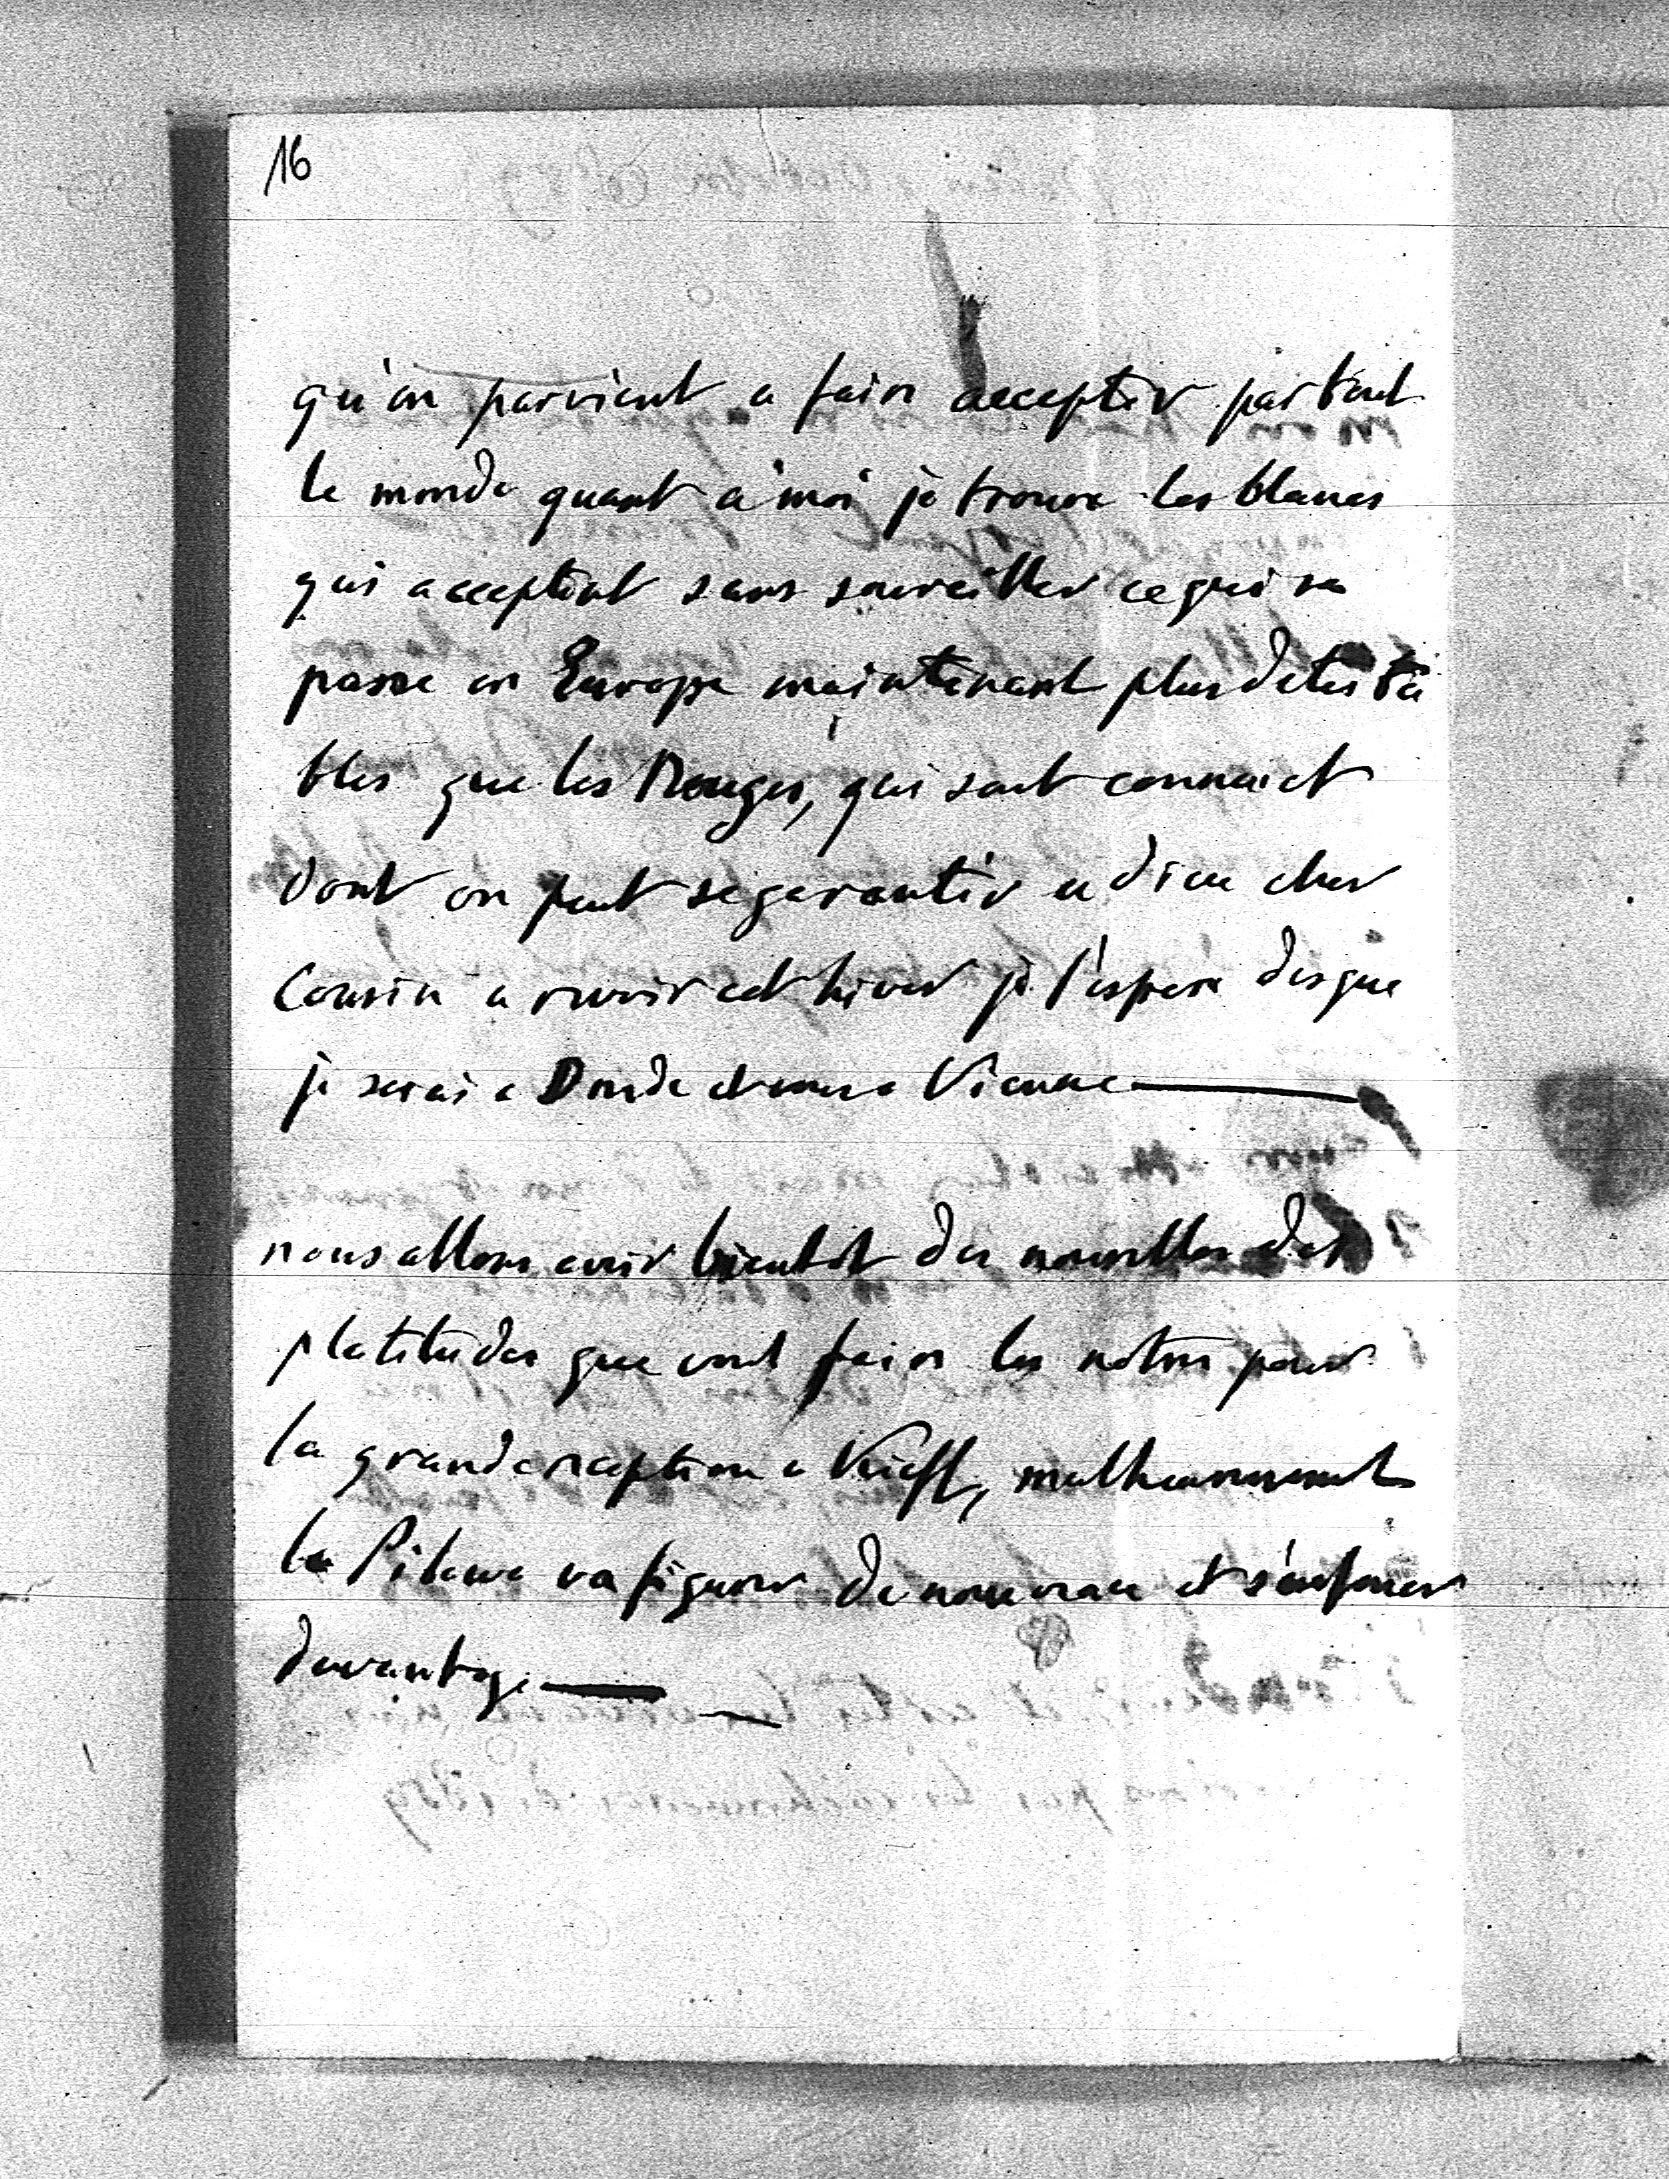 16
qu'on parvient a faire accepter par tout
le monde quant à moi je trouve les blancs
qui acceptent sans sourciller ce qui se
passe en Europe maintenant plus detesta
bles que les Rouges, qui sont connus et
dont on peut se garantir adieu cher
Cousin a revoir cet hiver je l'espere des que
je serai a Dresde et vous a Vienne
nous allons avoir bientot des nouvelles des
platitudes que vont faire les notres pour
la grande reception a Kieff, malheureusement
la Pilawa va figurer de nouveau et s'enfoncer
davantage